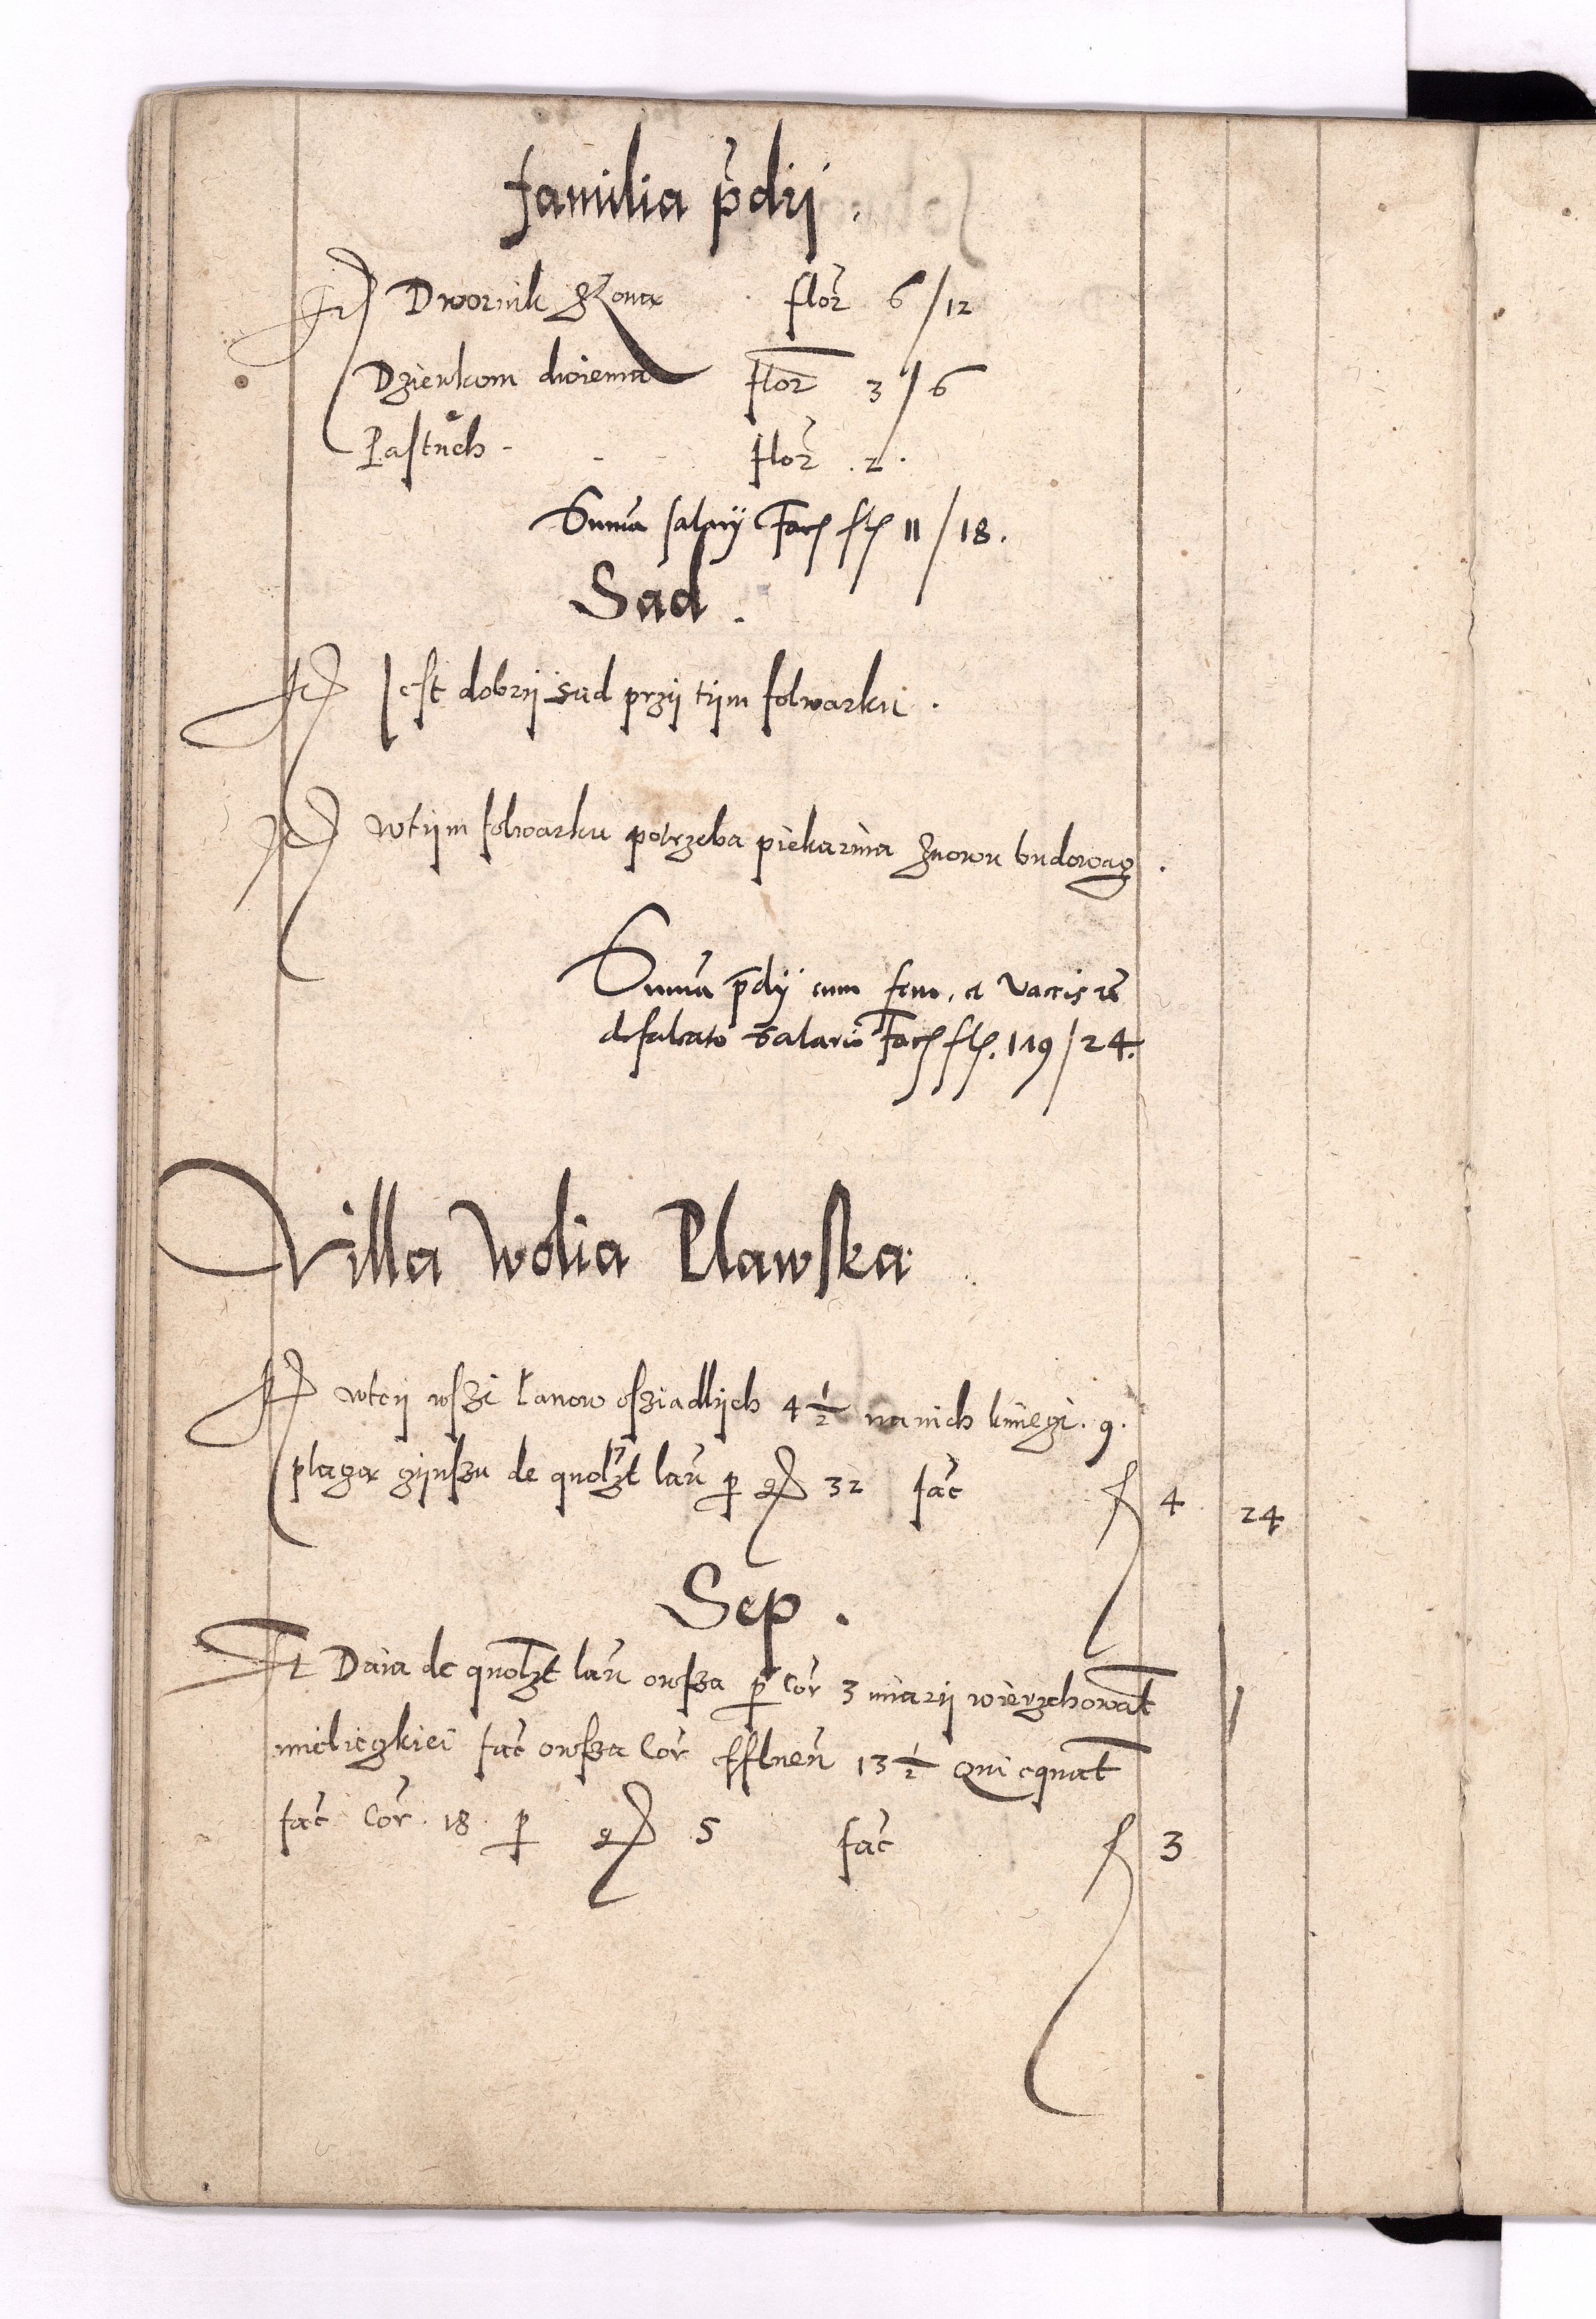 familia p̄dij.
It Dwornik Zzona flor̄ 6/12
Dzienkom dwiema flor̄ 3/6
Pastuch - - - flor̄ .2.
Summa salarij Fac fl 11/18.
Sad.
It Jest dobrij sad przij tijm folwarku.
It wtijm folwarku potrzeba piekarnia znowu budowacz.
Summa p̄dij cum feno, et vaccis
defalcato salario Fac fl. 119/24.
Villa Wolia Plawska
It wteij wszi łanow osziadlijch 4 1/2 na nich kmiegi. 9.
placza czijnszu de quolzt lan̄ p gr 32 fac̄ f 4 24
Sep.
It Daia de quolzt lan̄ owsza p cor̄ 3 miarij wierzchowat̄
mieliczkiei fac̄ owsza Cor̄ 13 1/2 Qui equat̄
fac̄ Cor̄. 18 p gr 5 fac̄ f 3